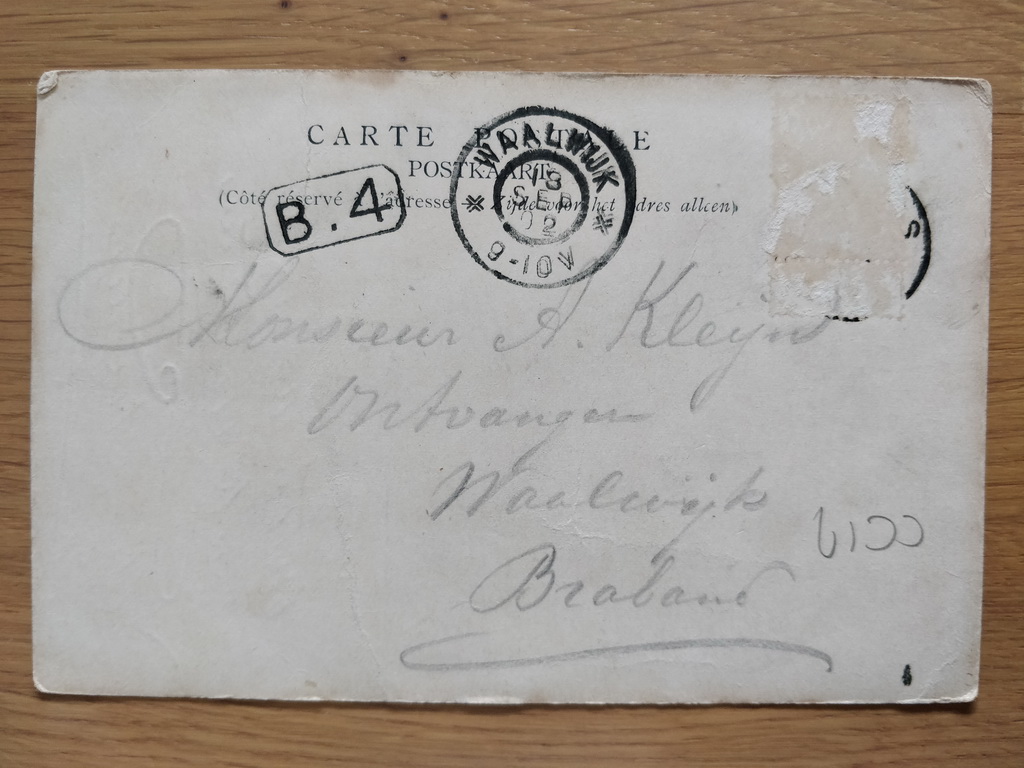 CARTE POSTALE
POSTKAART
(Côté réservé à l'adresse ※ Zijde voor het adres alleen)
B.4
WAALWIJK
18
SEP
02
9-10V
S
Monsieur A. Kleijn
Ontvanger
Waalwijk
Braband